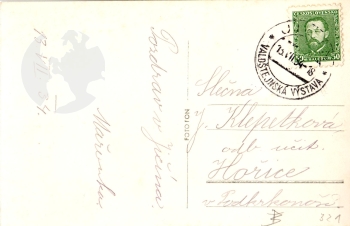 13. VII. 34.
Pozdrav z Jičína
Mařenka
FOTOFON
ČESKOSLOVENSKO
50
VALDŠTEJNSKÁ VÝSTAVA
Slečna
J. Klepetková
odb. učit.
Hořice
v Podkrkonoší